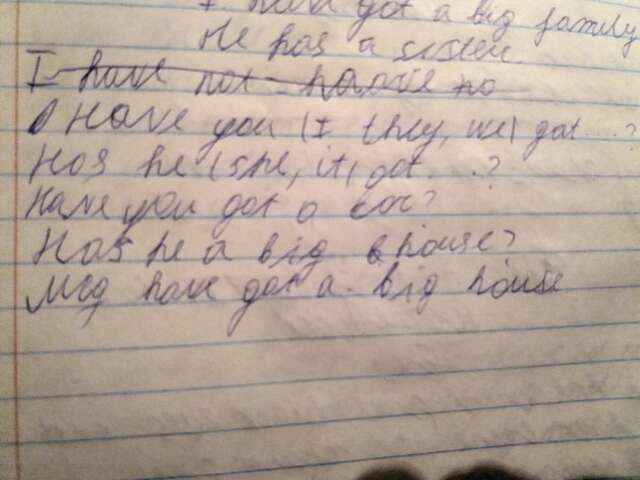 I have got a big family
He has a sister
I have not - have no
Have you (I they, we) got ...?
Has he (she, it) got ...?
Have you got a car?
Has he a big house?
Meg have got a big house